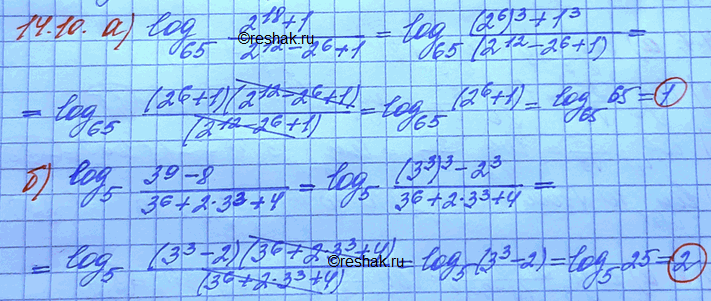 14.10. а) log₆₅ (2¹⁸+1)/(2¹²-2⁶+1) = log₆₅ ((2⁶)³+1³)/(2¹²-2⁶+1) =
= log₆₅ ((2⁶+1)(2¹²-2⁶+1))/(2¹²-2⁶+1) = log₆₅ (2⁶+1) = log₆₅ 65 = 1
©reshak.ru
б) log₅ (3⁹-8)/(3⁶+2·3³+4) = log₅ ((3³)³-2³)/(3⁶+2·3³+4) =
= log₅ ((3³-2)(3⁶+2·3³+4))/(3⁶+2·3³+4) = log₅ (3³-2) = log₅ 25 = 2
©reshak.ru